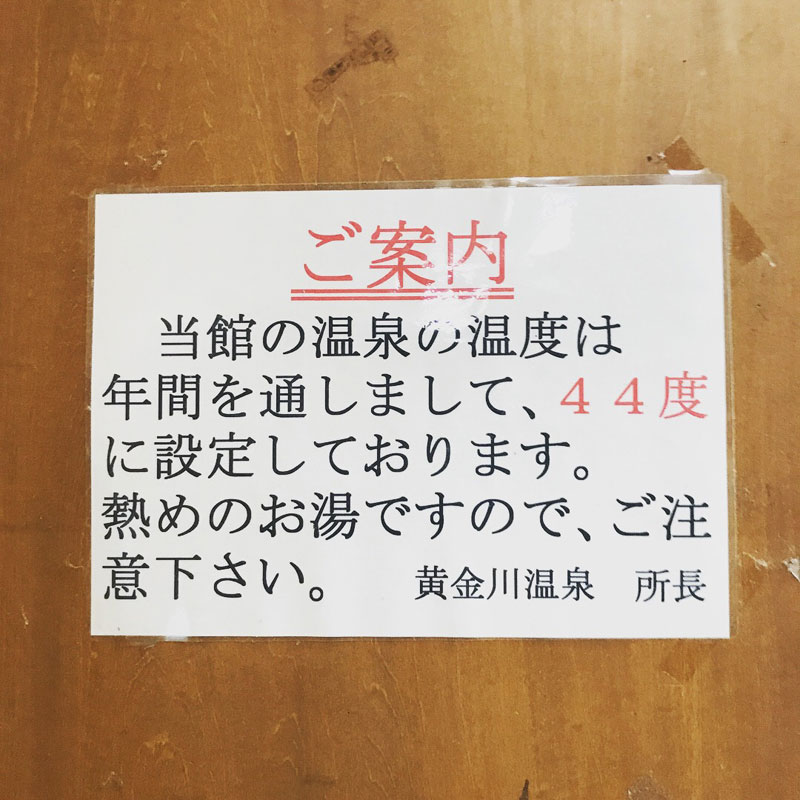 ご案内
当館の温泉の温度は
年間を通しまして、４４度
に設定しております。
熱めのお湯ですので、ご注
意下さい。　黄金川温泉　所長